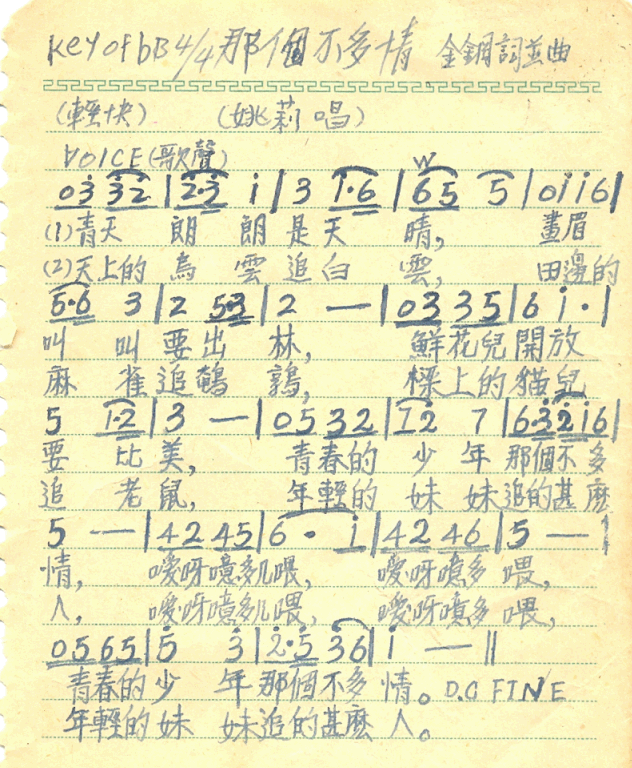 key of bB 4/4 那個不多情 金鋼詞並曲
(輕快) (姚莉唱)
VOICE(歌聲)
03 32 | 2·3 i | 3 i·6 | 65 5 | 0ii6 |
(1)青天 朗 朗 是 天 晴, 畫眉
(2)天上的 烏 雲 追 白 雲, 田邊的
5·6 3 | 2 53 | 2 — | 03 35 | 6 i · |
叫 叫 要 出 林, 鮮花兒 開 放
麻 雀 追 鵪 鶉, 樑上的 貓 兒
5 i·2 | 3 — | 05 32 | i2 7 | 63 2i6 |
要 比 美, 青春的 少 年 那個不 多
追 老 鼠, 年輕的 妹 妹 追的甚麽
5 — | 42 45 | 6 · i | 42 46 | 5 — |
情, 噯呀噫多ㄦ喂, 噯呀噫多 喂,
人, 噯呀噫多ㄦ喂, 噯呀噫多 喂,
0565 | 5 3 | 2·5 36 | i — ||
青春的 少 年 那個不多 情。 D.C FINE
年輕的 妹 妹追的甚麽 人。